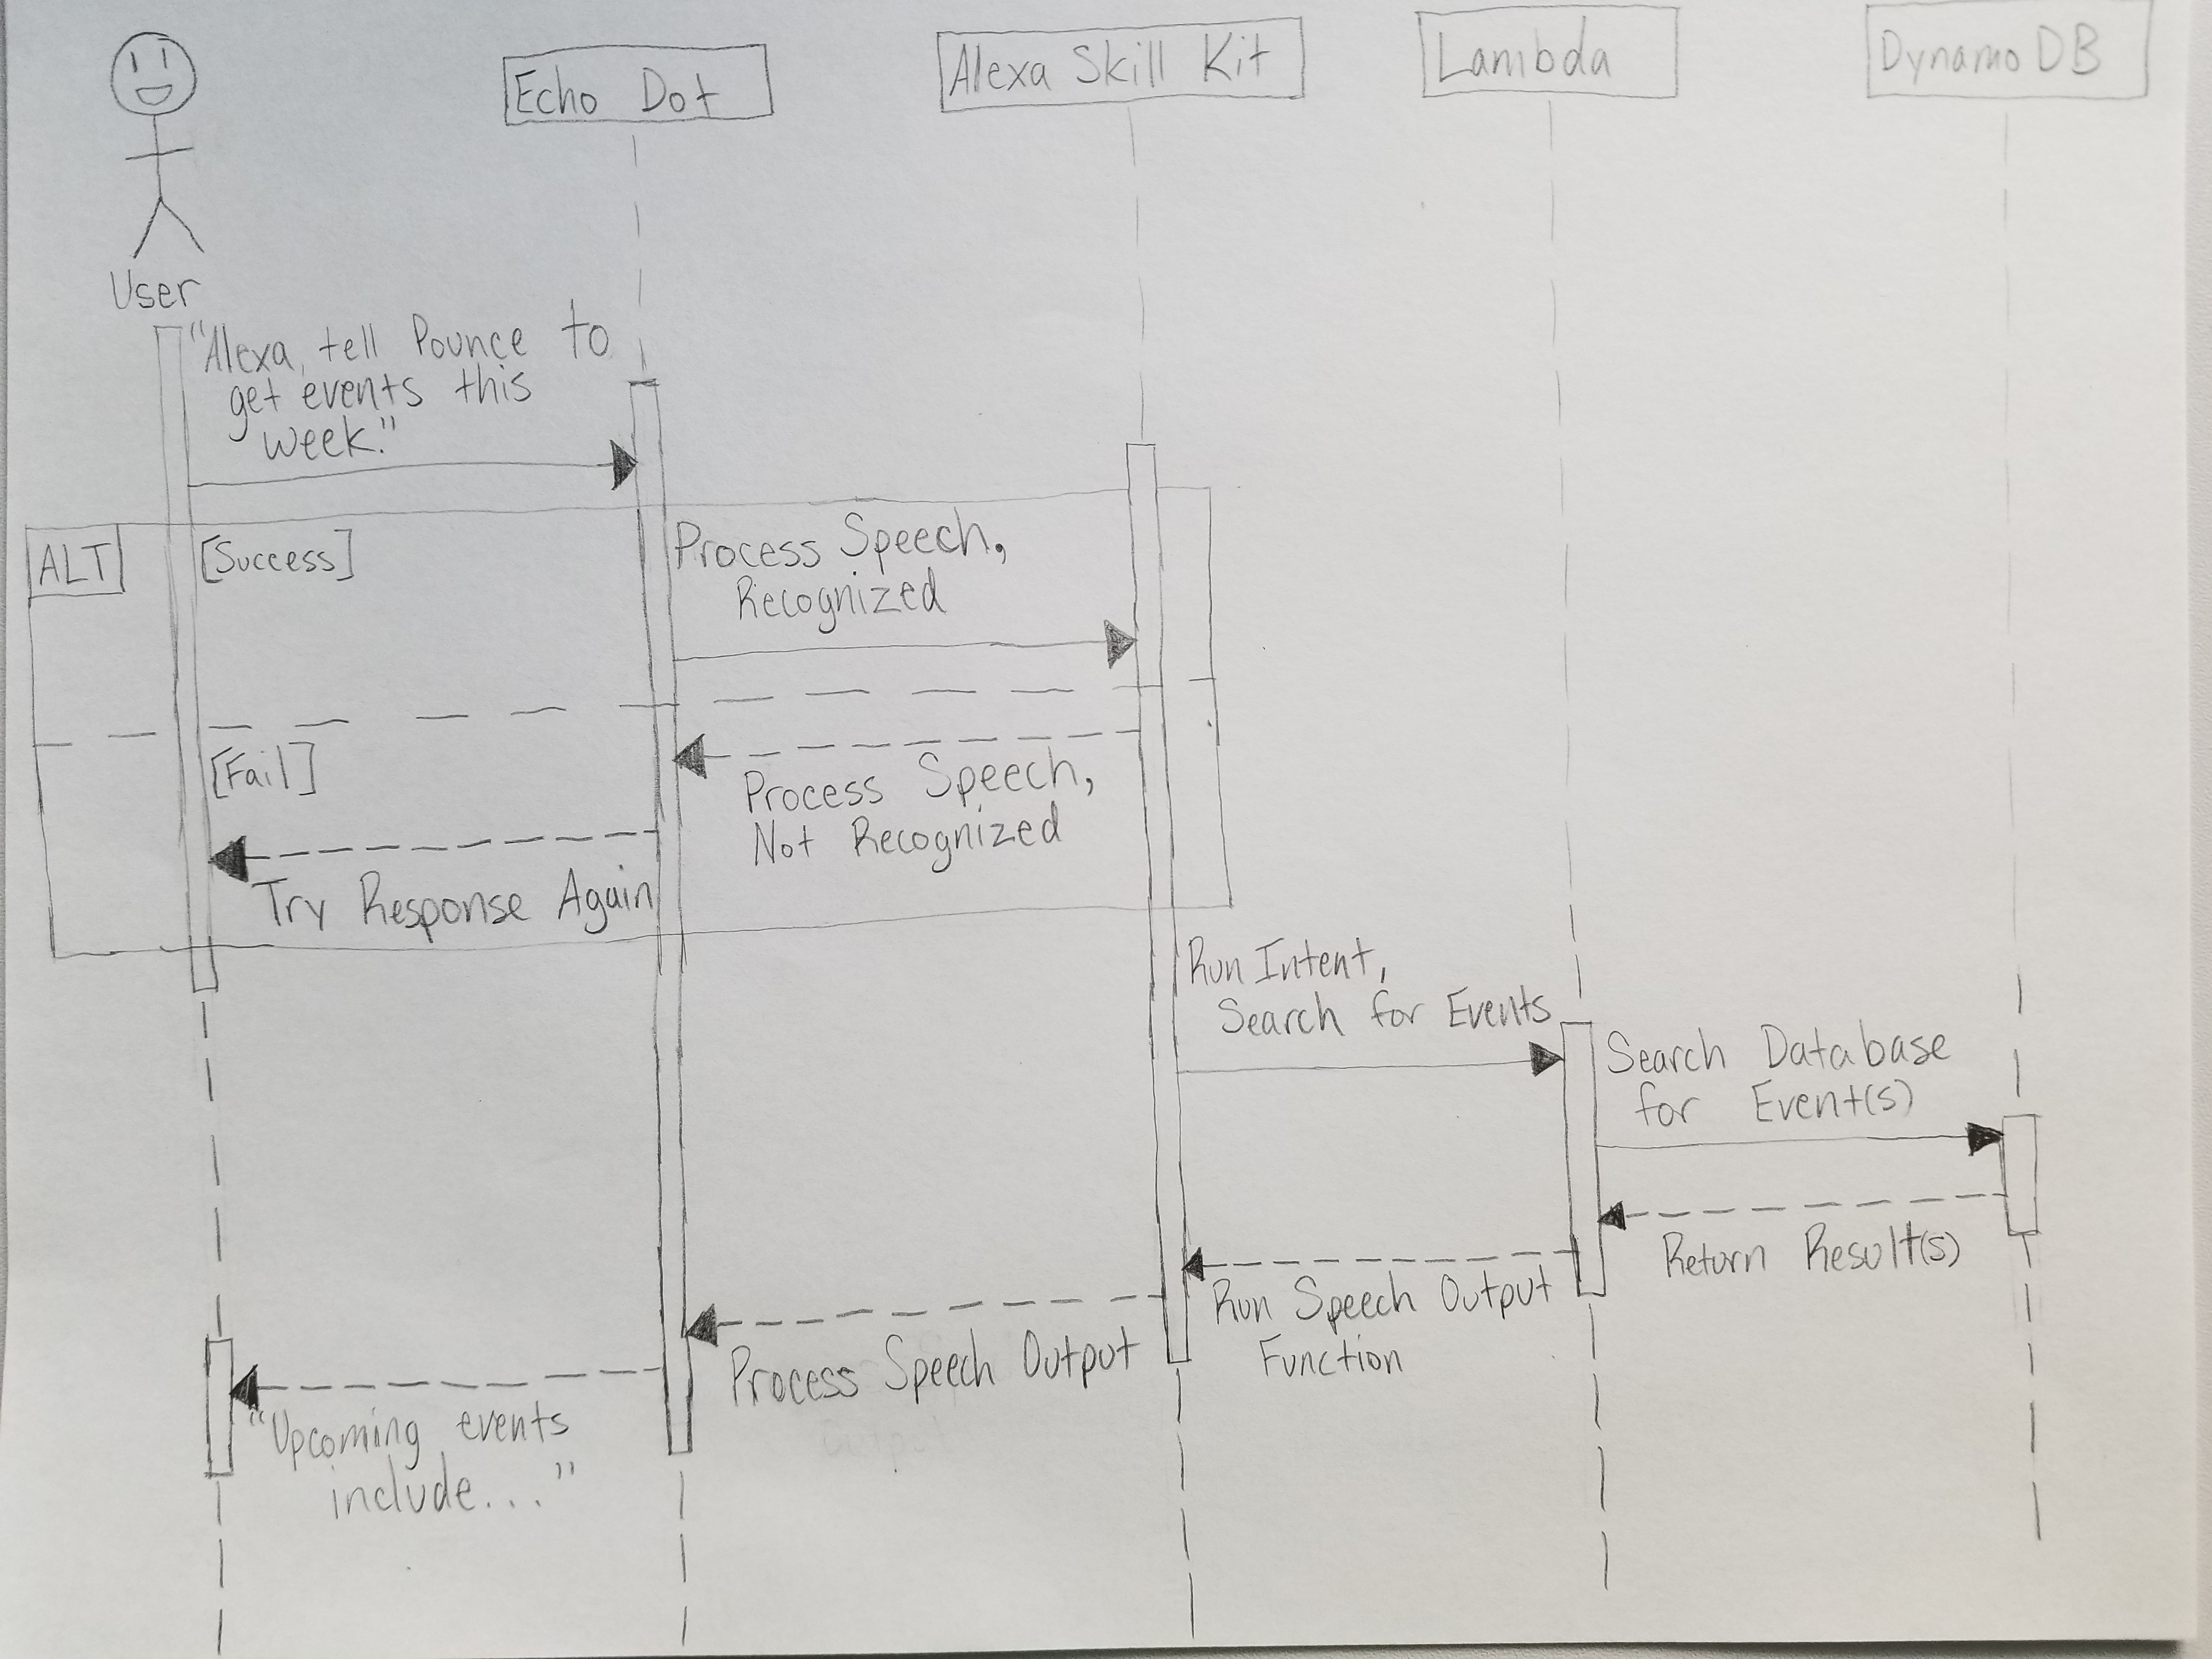 Echo Dot
Alexa Skill Kit
Lambda
DynamoDB
User
"Alexa, tell Pounce to
get events this
week."
ALT
[Success]
Process Speech,
Recognized
[Fail]
Process Speech,
Not Recognized
Try Response Again
Run Intent,
Search for Events
Search Database
for Event(s)
Return Result(s)
Run Speech Output
Function
Process Speech Output
"Upcoming events
include..."
Output